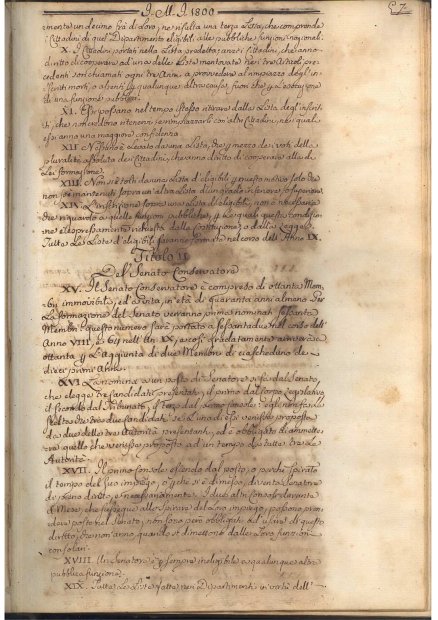 I.M.I 1800
mente un decimo frà di loro, ne risulta una terza Lista, che comprende
i Cittadini di quel Dipartimento eligibili alle pubbliche funzioni nazionali.
X. I Cittadini portati nella Lista predetta; anzi i Cittadini, che hanno
diritto di cooperare ad una delle Liste mentovate nei trè Articoli pre-
cedenti son chiamati ogni tre Anni a provvedere al rimpiazzo degl' in-
scritti morti, o assenti
di una funzione pubblica.
XI. Essi possano nel tempo istesso ritirare dalla Lista degl' inscrit-
ti, che non vollono ritenervi, e rimpiazzarli con altri Cittadini, nei quali
essi anno una maggiore confidenza
XII Nessuno è levato da una Lista, che per mezzo dei voti della
pluralità assoluta dei Cittadini, che anno diritto di cooperare alla di
Lei formazione.
XIII. Non si è tolti da una Lista d'eligibili per questo motivo solo che
non si è mantenuti sopra un' altra Lista d'un grado inferiore, o superiore.
XIV. L'inscrizione sopra una Lista d'eligibili, non è necessaria
che riguardo a quelle funzioni pubbliche, per le quali questa condizio-
ne è espressamente richiesta dalla Costituzione, o dalla Legge.
Tutte le Liste d'eligibili saranno formate nel corso dell' Anno IX.
Titolo II
Del Senato Conservatore
XV. Il Senato Conservatore è composto di ottanta Mem-
bri immobili, ed a vita, in età di quaranta anni almeno. Per
la formazione del Senato verranno prima nominati sessanta
Membri: questo numero sarà portato a sessantadue nel corso dell'
Anno VIII, e 64 nell' Anno IX, e così gradatamente arriverà a
ottanta per l'Aggiunta di due Membri di ciascheduno de
dieci primi Anni.
XVI. La nomina a un posto di Senatore si fa dal Senato,
che elegge tre candidati presentati, il primo dal Corpo Legislativo
il secondo dal Tribunato, e il terzo dal primo console: egli non fa la
scelta che tra due candidati, se l'uno di essi venisse proposto
da due delle tre Autorità presentanti, ed è obbligato di ammette-
re quello che venisse proposto ad un tempo da tutte tre le
Autorità.
XVII. Il primo Console escendo dal posto, o perchè spirato
il tempo del suo impiego, o perchè si è dimesso, diventa Senatore
di pieno diritto, e necessariamente. I due altri Consoli durante
il Mese, che susseque allo spirare del loro impiego, possono pren-
dere posto nel Senato, non sono però obbligati ad usare di questo
diritto; e non anno, quando si dimettono dalle loro funzioni
consolari.
XVIII. Un Senatore è per sempre ineligibile a qualunque altra
pubblica funzione.
XIX. Tutte le Liste fatte nei Dipartimenti in virtù dell'